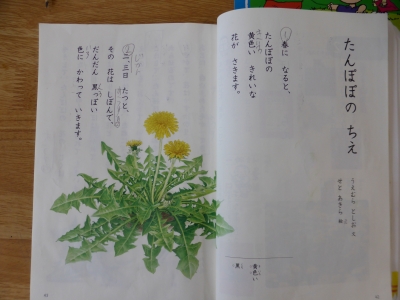 たんぽぽの ちえ
うえむら としお 文
せと あきら
①春に なると、
たんぽぽの
黄色い きれいな
花が さきます。
黄色い
黒
②二、三日 たつと、
その 花は しぼんで、
だんだん 黒っぽい
色に かわって いきます。